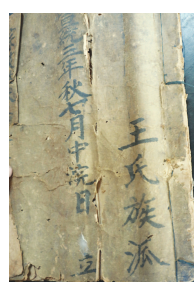 三年秋七月中浣日
立
王氏族派